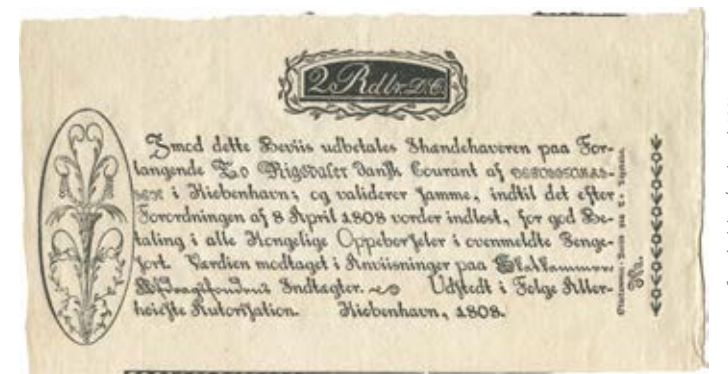 2 Rdlr. D. C.
Imod dette Beviis udbetales Ihændehaveren paa For-
langende To Rigsdaler Dansk Courant af DEPOSITOKAS-
SEN i Kiøbenhavn; og validerer samme, indtil det efter
Forordningen af 8 April 1808 vorder indløst, for god Be-
taling i alle Kongelige Oppebørseler i ovenmeldte Penge-
sort. Værdien modtaget i Anviisninger paa Skatkammer-
Afdragsfondens Indtægter. Udstedt i Følge Aller-
høieste Autorisation. Kiøbenhavn, 1808.
No.